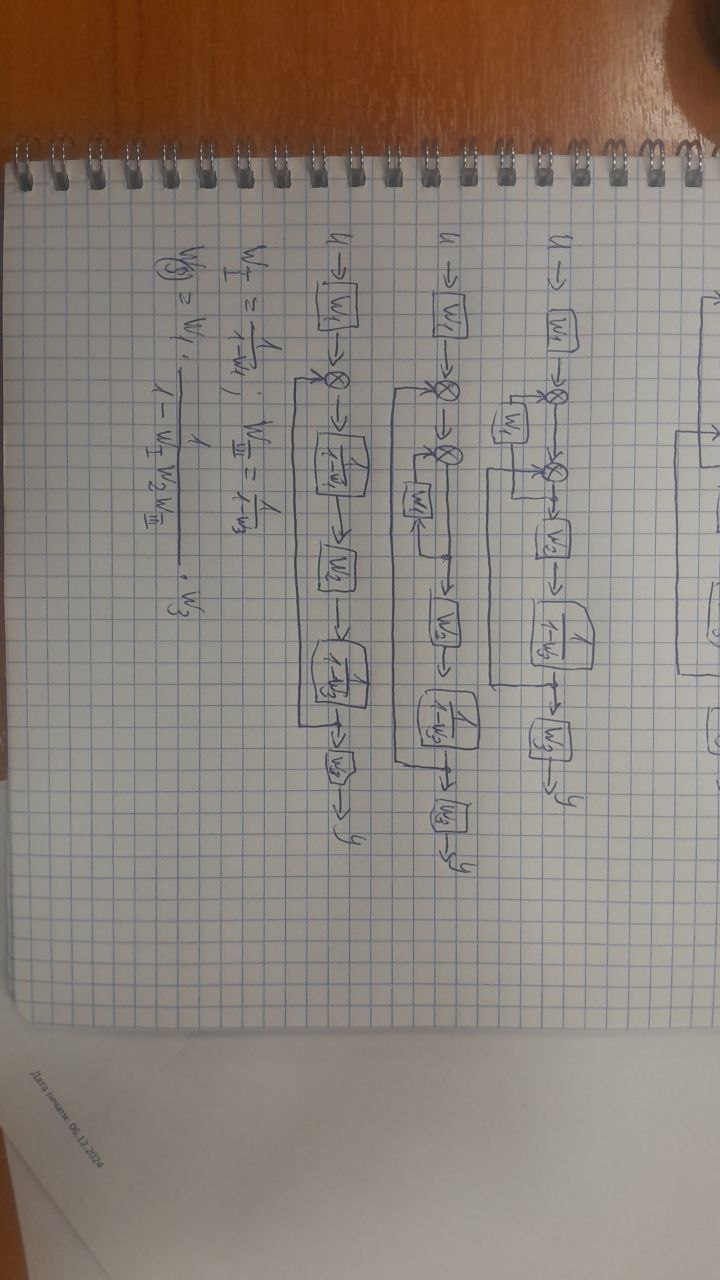 u → W₁ → ⊗ → ⊗ → W₂ → 1/(1-W₃) → W₃ → y
W₁
u → W₁ → ⊗ → ⊗ → W₂ → 1/(1-W₃) → W₃ → y
W₁
u → W₁ → ⊗ → 1/(1-W₁) → W₂ → 1/(1-W₃) → W₃ → y
W_I = 1/(1-W₁) ; W_III = 1/(1-W₃)
= W₁ · 1/(1 - W_I W₂ W_III) · W₃
Дата печати: 06.12.2024